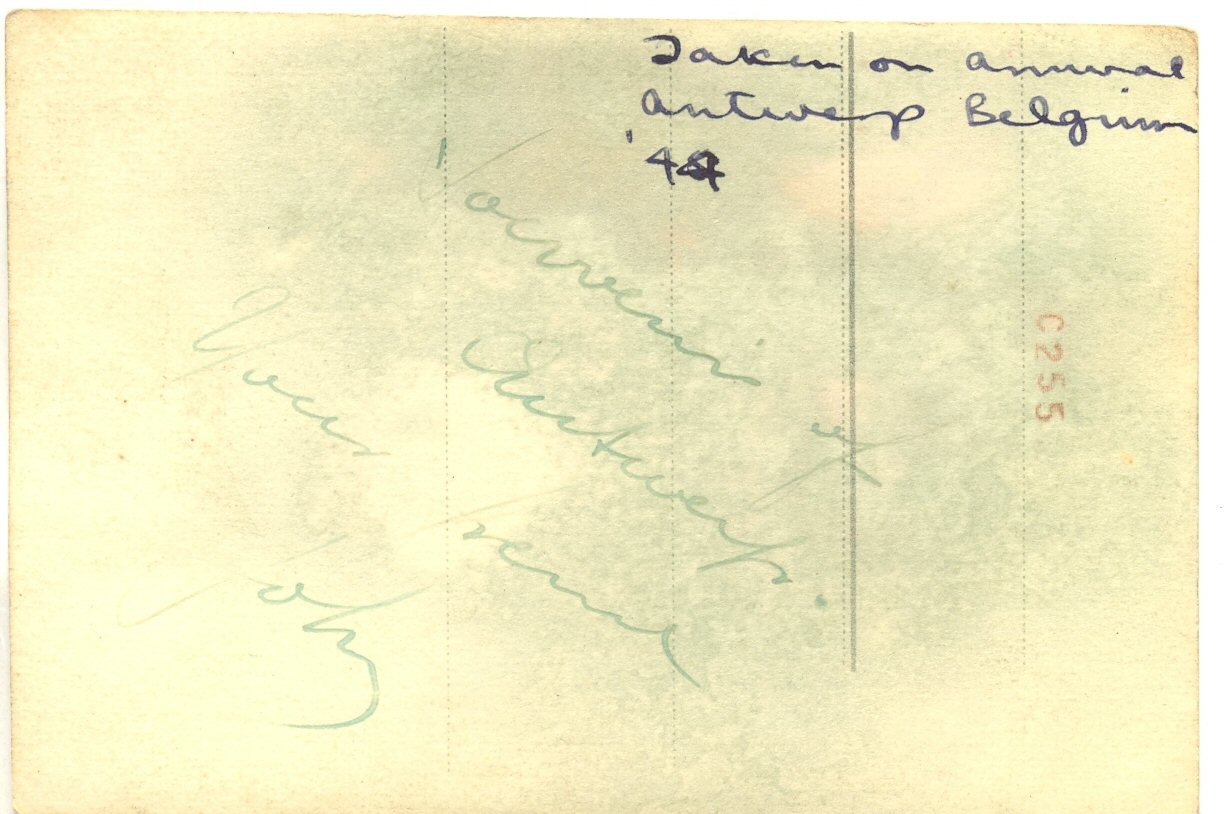 Taken on arrival
Antwerp Belgium
'44
Souvenir of
Antwerp.
Your friend
C255